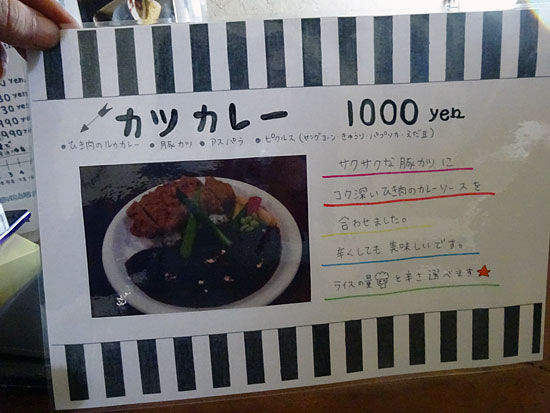 カツカレー 1000 yen
●ひき肉のルウカレー ●豚カツ ●アスパラ ●ピクルス (ヤングコーン きゅうり・パプリカ・えだ豆)
サクサクな豚カツに
コク深いひき肉のカレーソースを
合わせました。
辛くしても美味しいです。
ライスの量と辛さ選べます
yen.